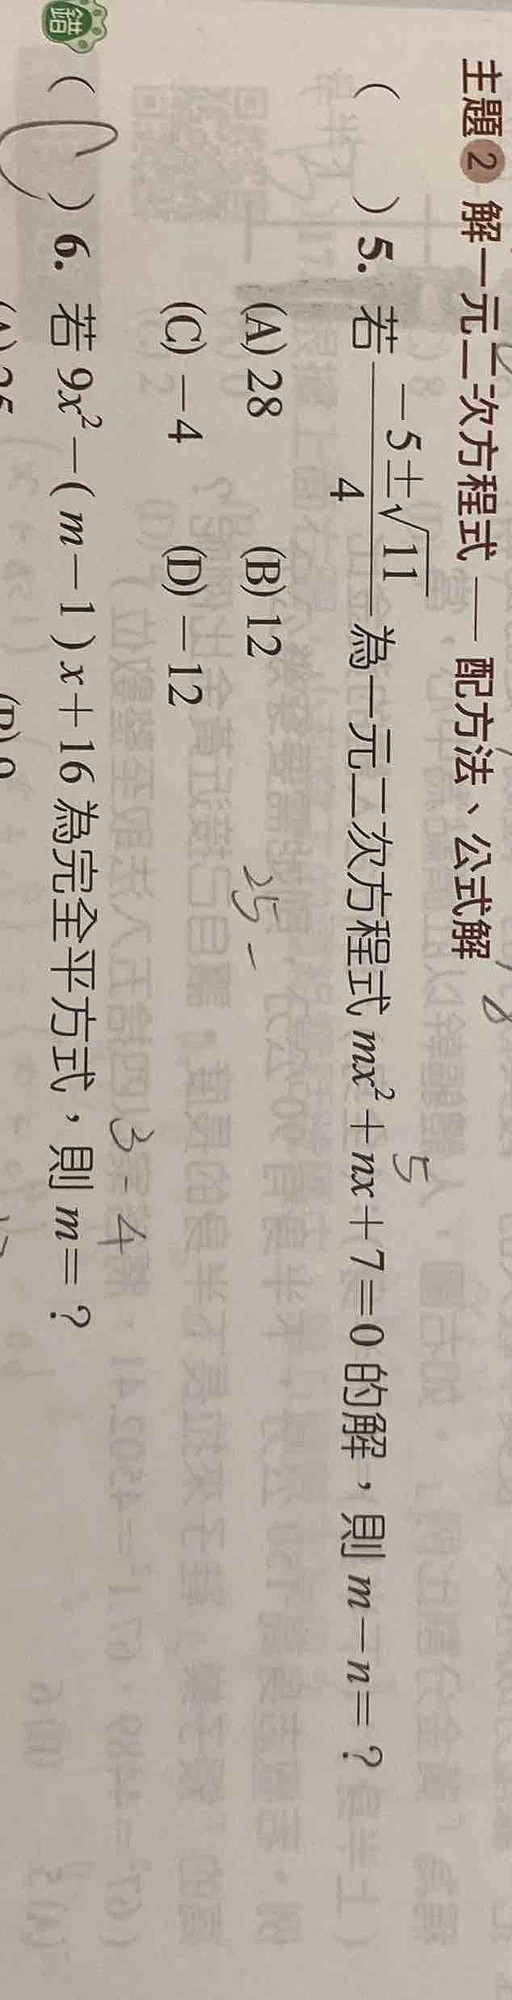 主題2 解一元二次方程式—配方法、公式解
( ) 5. 若 (-5±√11)/4 為一元二次方程式 mx²+nx+7=0 的解,則 m-n=?
5
(A) 28 (B) 12
25-
(C) -4 (D) -12
3-4
錯
( ) 6. 若 9x²-(m-1)x+16 為完全平方式,則 m=?